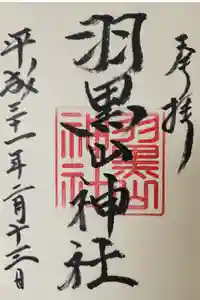 奉拝
羽黒山神社
羽黒山
神社
平成二十一年一月十三日